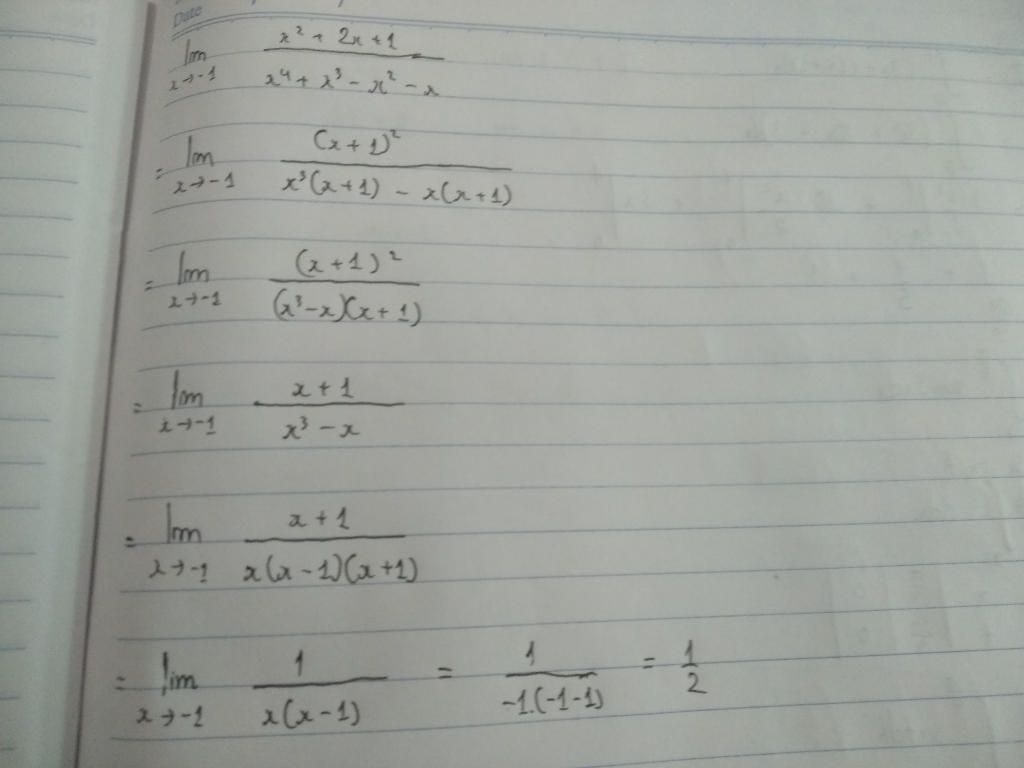 Date
lim x→-1 (x² + 2x + 1)/(x⁴ + x³ - x² - x)
= lim x→-1 (x + 1)²/(x³(x + 1) - x(x + 1))
= lim x→-1 (x + 1)²/((x³ - x)(x + 1))
= lim x→-1 (x + 1)/(x³ - x)
= lim x→-1 (x + 1)/(x(x - 1)(x + 1))
= lim x→-1 1/(x(x - 1)) = 1/(-1.(-1-1)) = 1/2